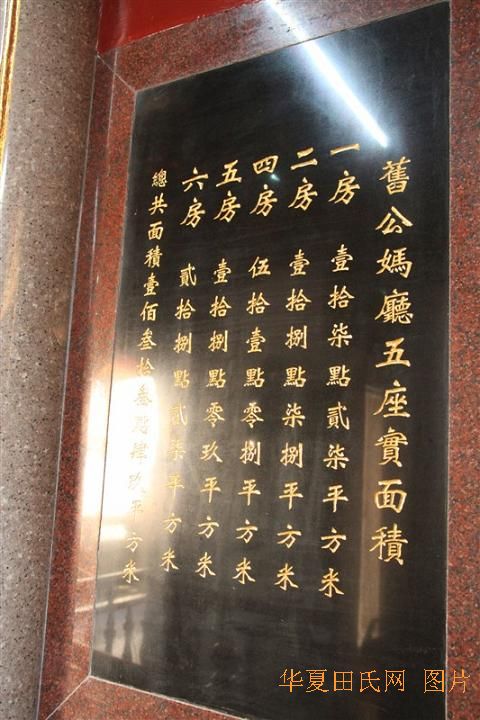 舊公媽廳五座實面積
一房 壹拾柒點貳柒平方米
二房 壹拾捌點柒捌平方米
四房 伍拾壹點零捌平方米
五房 壹拾捌點零玖平方米
六房 貳拾捌點貳柒平方米
總共面積壹佰叁拾叁點肆玖平方米
华夏田氏网 图片